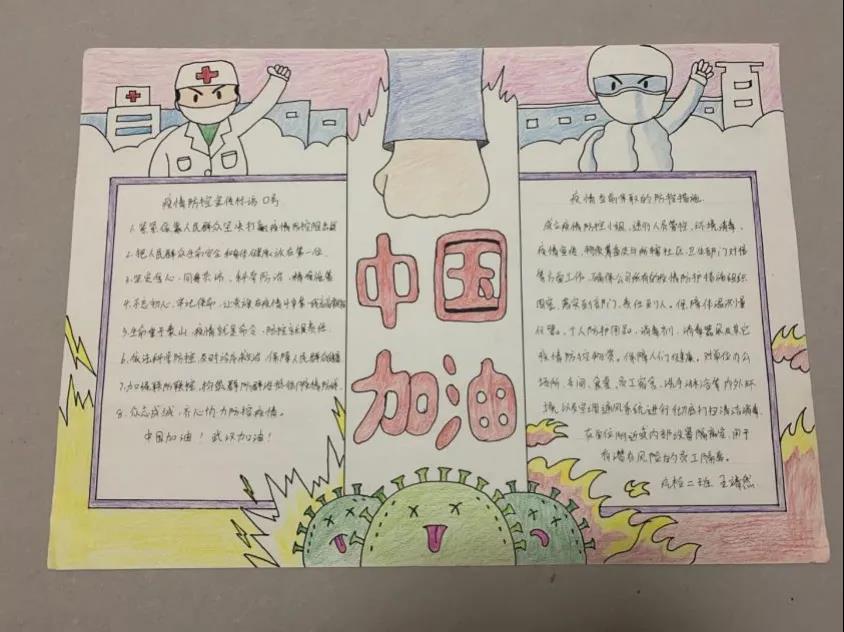 疫情防控宣传标语口号
1.紧紧依靠人民群众坚决打赢疫情防控阻击战
2.把人民群众生命安全和身体健康放在第一位
3.坚定信心、同舟共济、科学防治、精准施策
4.不忘初心、牢记使命,让党旗在疫情斗争第一线高高飘扬
5.生命重于泰山,疫情就是命令,防控就是责任
6.依法科学防控,及时治疗救治,保障人民群众健康
7.加强群防联控,构筑群防群治抵御疫情防线
8.众志成城,齐心协力防控疫情。
中国加油!武汉加油!
中国
加油
百
疫情当前采取的防控措施
成立疫情防控小组,进行人员管控,环境消毒,
疫情宣传,物资筹备及与所辖社区卫生部门对接
等方面工作,确保公司所有的疫情防护措施组织
到部门,责任到人。保障体温测量
仪器,个人防护用品,消毒剂,消毒器械及其它
疫情防控物资,保障人们健康。对单位办公
场所,车间,食堂,员工宿舍,洗手沐浴等内外环
境,以及空调通风系统进行彻底打扫清洁消毒
在单位附近或内部设置隔离室,用于
有潜在风险的员工隔离。
检二班